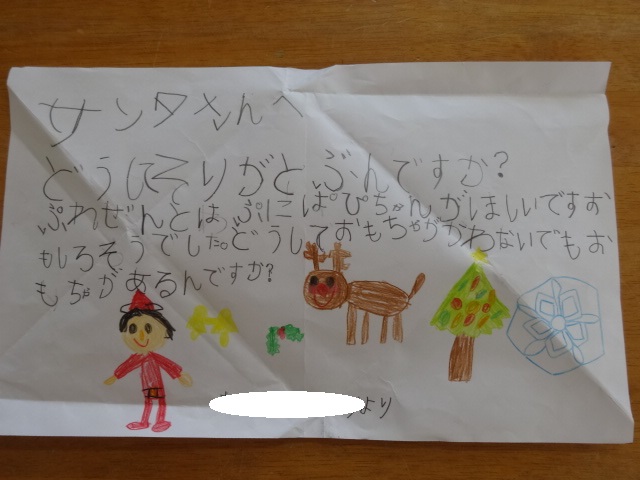 サンタさんへ
どうにそりがとぶんですか?
ぷわぜんとは、ぷにぱぴちゃんがほしいですお
もしろそうでした。どうしておもちゃががわないでもお
もちゃがあるんですか?
より